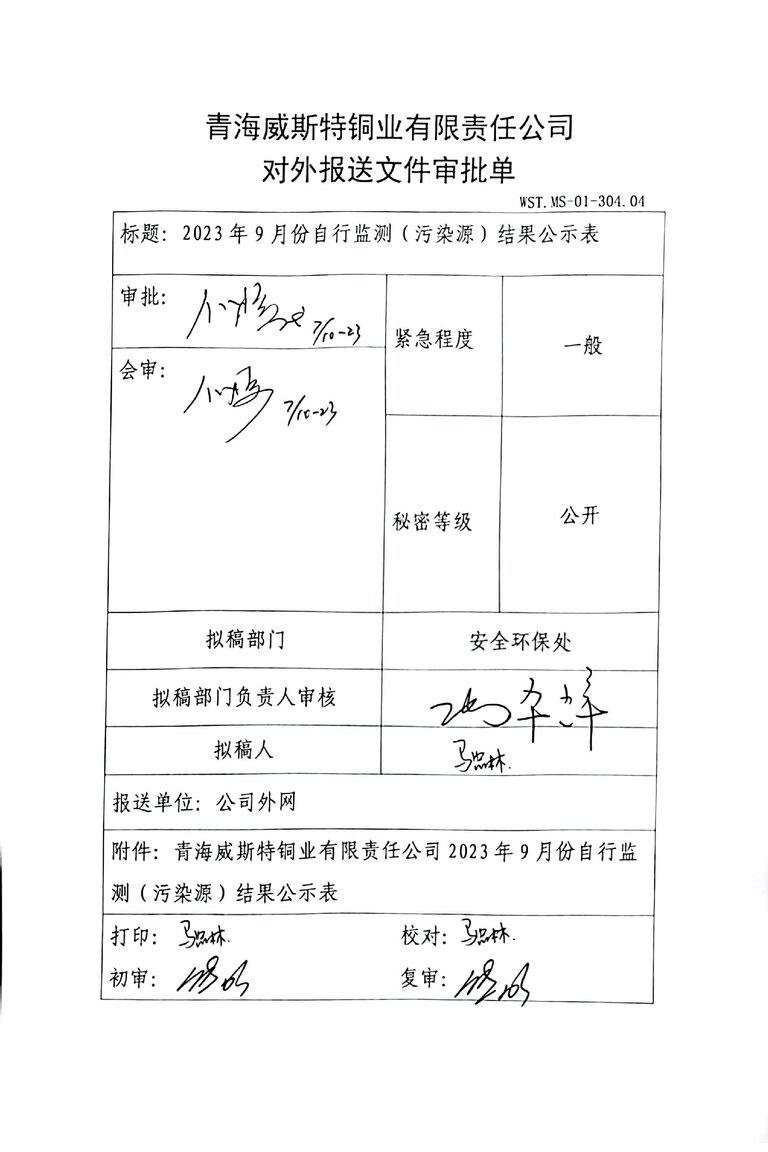 青海威斯特铜业有限责任公司
对外报送文件审批单
WST.MS-01-304.04
标题：2023年9月份自行监测（污染源）结果公示表
审批：
7/10-23
紧急程度
一般
会审：
7/10-23
秘密等级
公开
拟稿部门
安全环保处
拟稿部门负责人审核
拟稿人
马忠林.
报送单位：公司外网
附件：青海威斯特铜业有限责任公司2023年9月份自行监
测（污染源）结果公示表
打印：马忠林.
校对：马忠林.
初审：
复审：